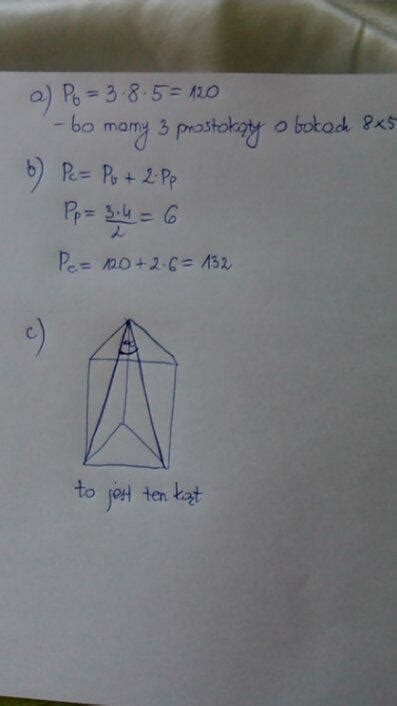 a) Pb = 3·8·5 = 120
- bo mamy 3 prostokąty o bokach 8x5
b) Pc = Pb + 2·Pp
Pp = 3·4/2 = 6
Pc = 120 + 2·6 = 132
c)
α
to jest ten kąt